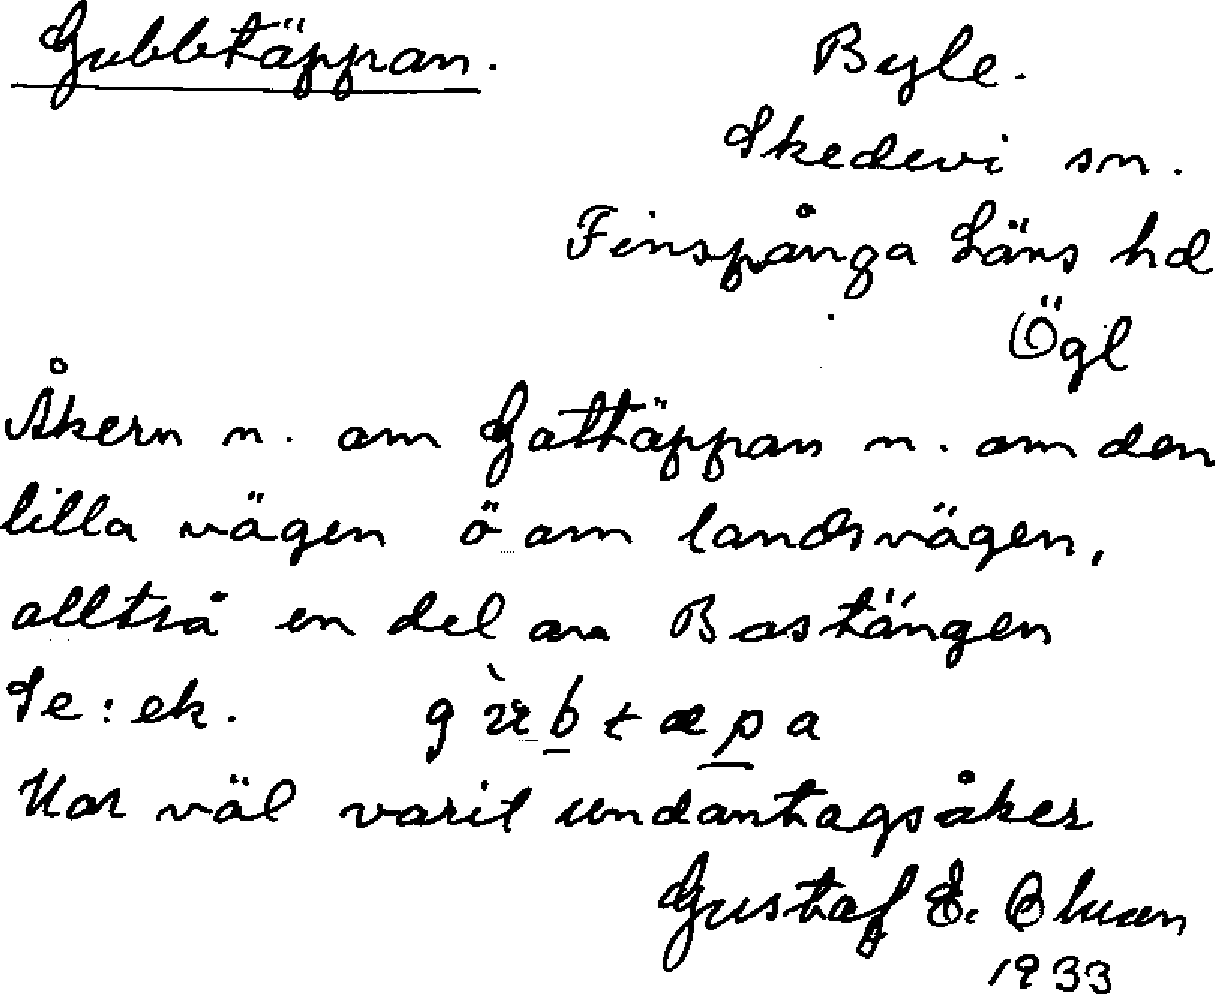 Gubbtäppan.
Byle.
Skedevi sn.
Finspånga Läns hd
Ögl
Åkern n. om Gattäppan n. om den
lilla vägen ö om landsvägen,
alltså en del av Bastängen
Se: ek. g b t æ p a
Har väl varit undantagsåker
Gustaf E.
1933